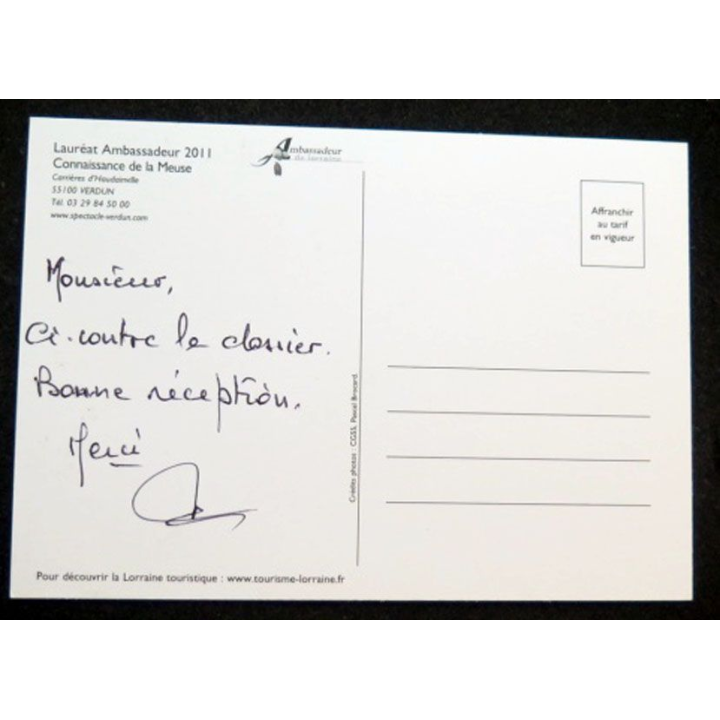 Lauréat Ambassadeur 2011
Connaissance de la Meuse
Carrières d'Haudainville
55100 VERDUN
Tél. 03 29 84 50 00
www.spectacle-verdun.com
Ambassadeur
de lorraine
Affranchir
au tarif
en vigueur
Monsieur,
Ci-contre le dossier.
Bonne réception.
Merci
Crédits photos : CGSS, Pascal Brocard.
Pour découvrir la Lorraine touristique : www.tourisme-lorraine.fr